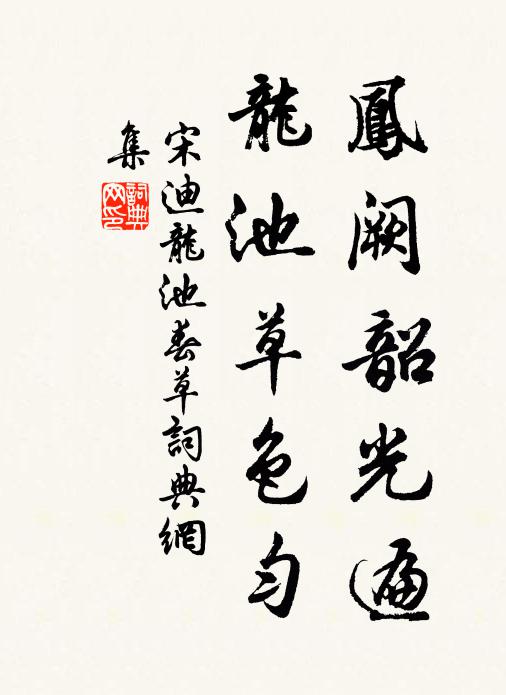 鳳闕韶光遍
龍池草色勻
宋迪龍池春草詞典網
集
詞典
网印